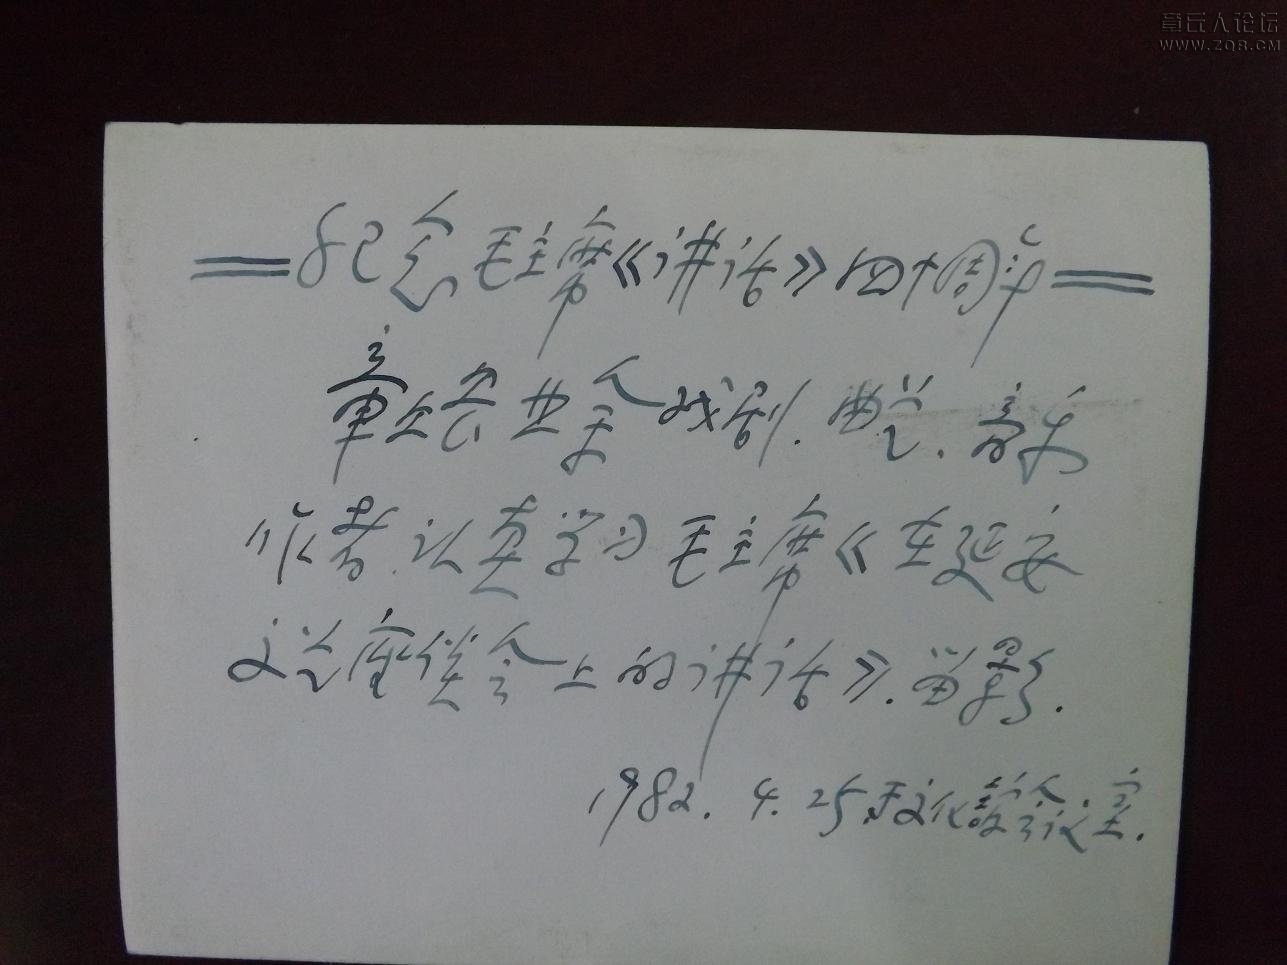 章丘人论坛
WWW.ZQ8.CM
==纪念毛主席《讲话》四十周年==
章丘县业余戏剧.曲艺.音乐
作者.认真学习毛主席《在延安
文艺座谈会上的讲话》.留影.
1982.4.25.于文化馆会议室.